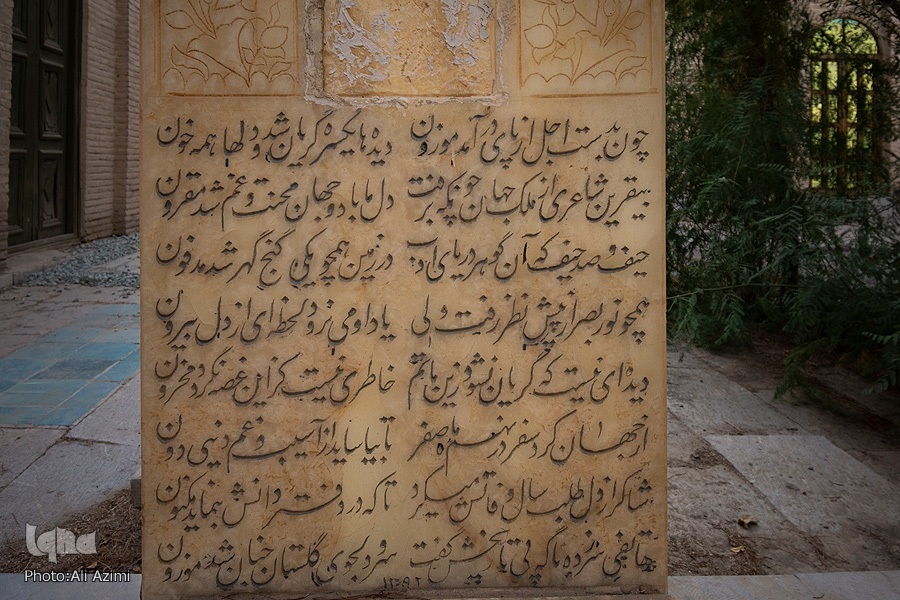 چون بدست اجل از پای در آمد موزون دیده ها یکسره گریان شد و دلها همه خون
بیقرین شاعری از ملک جهان چونکه برفت دل ما با دو جهان محنت و غم شد مقرون
حیف و صد حیف که آن گوهر دریای ادب در زمین همچو یکی گنج گهر شده مدفون
همچو نور بصر از پیش نظر رفت ولی یاد او می نرود لحظه ای از دل بیرون
دیده ای نیست که گریان نشود زین ماتم خاطری نیست کز این غصه نگردد محزون
از جهان کرد سفر در نهم ماه صفر تا بیاساید از آسیب و غم دنیی دون
شاکر از دل طلب سال وفاتش میکرد تا که در دفتر دانش بنماید مکنون
هاتفی ناگه پی تاریخش گفت سرو دلجوی گلستان جنان شد موزون
۱۳۹۲
iqna
Photo:Ali Azimi